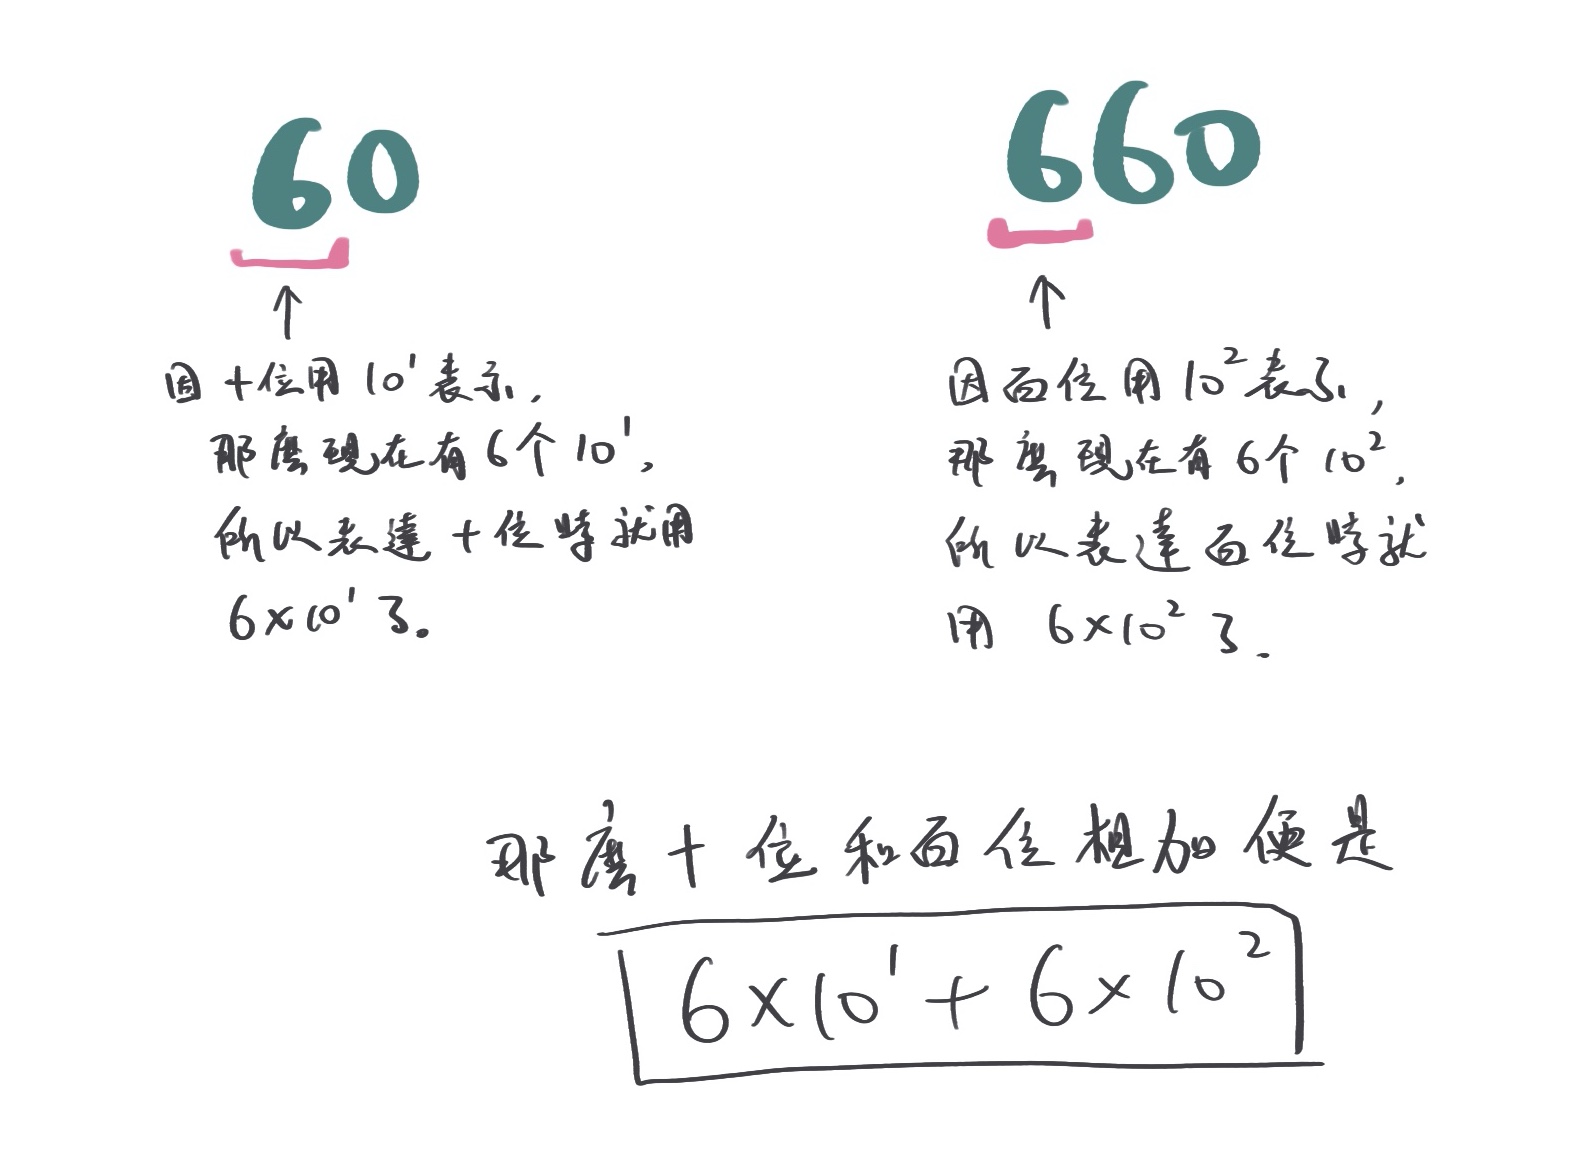 60
因十位用10¹表示,
那麽現在有6个10¹,
所以表達十位時就用
6×10¹了.
660
因百位用10²表示,
那麽現在有6个10²,
所以表達百位時就
用 6×10²了.
那麽十位和百位相加便是
6×10¹+6×10²